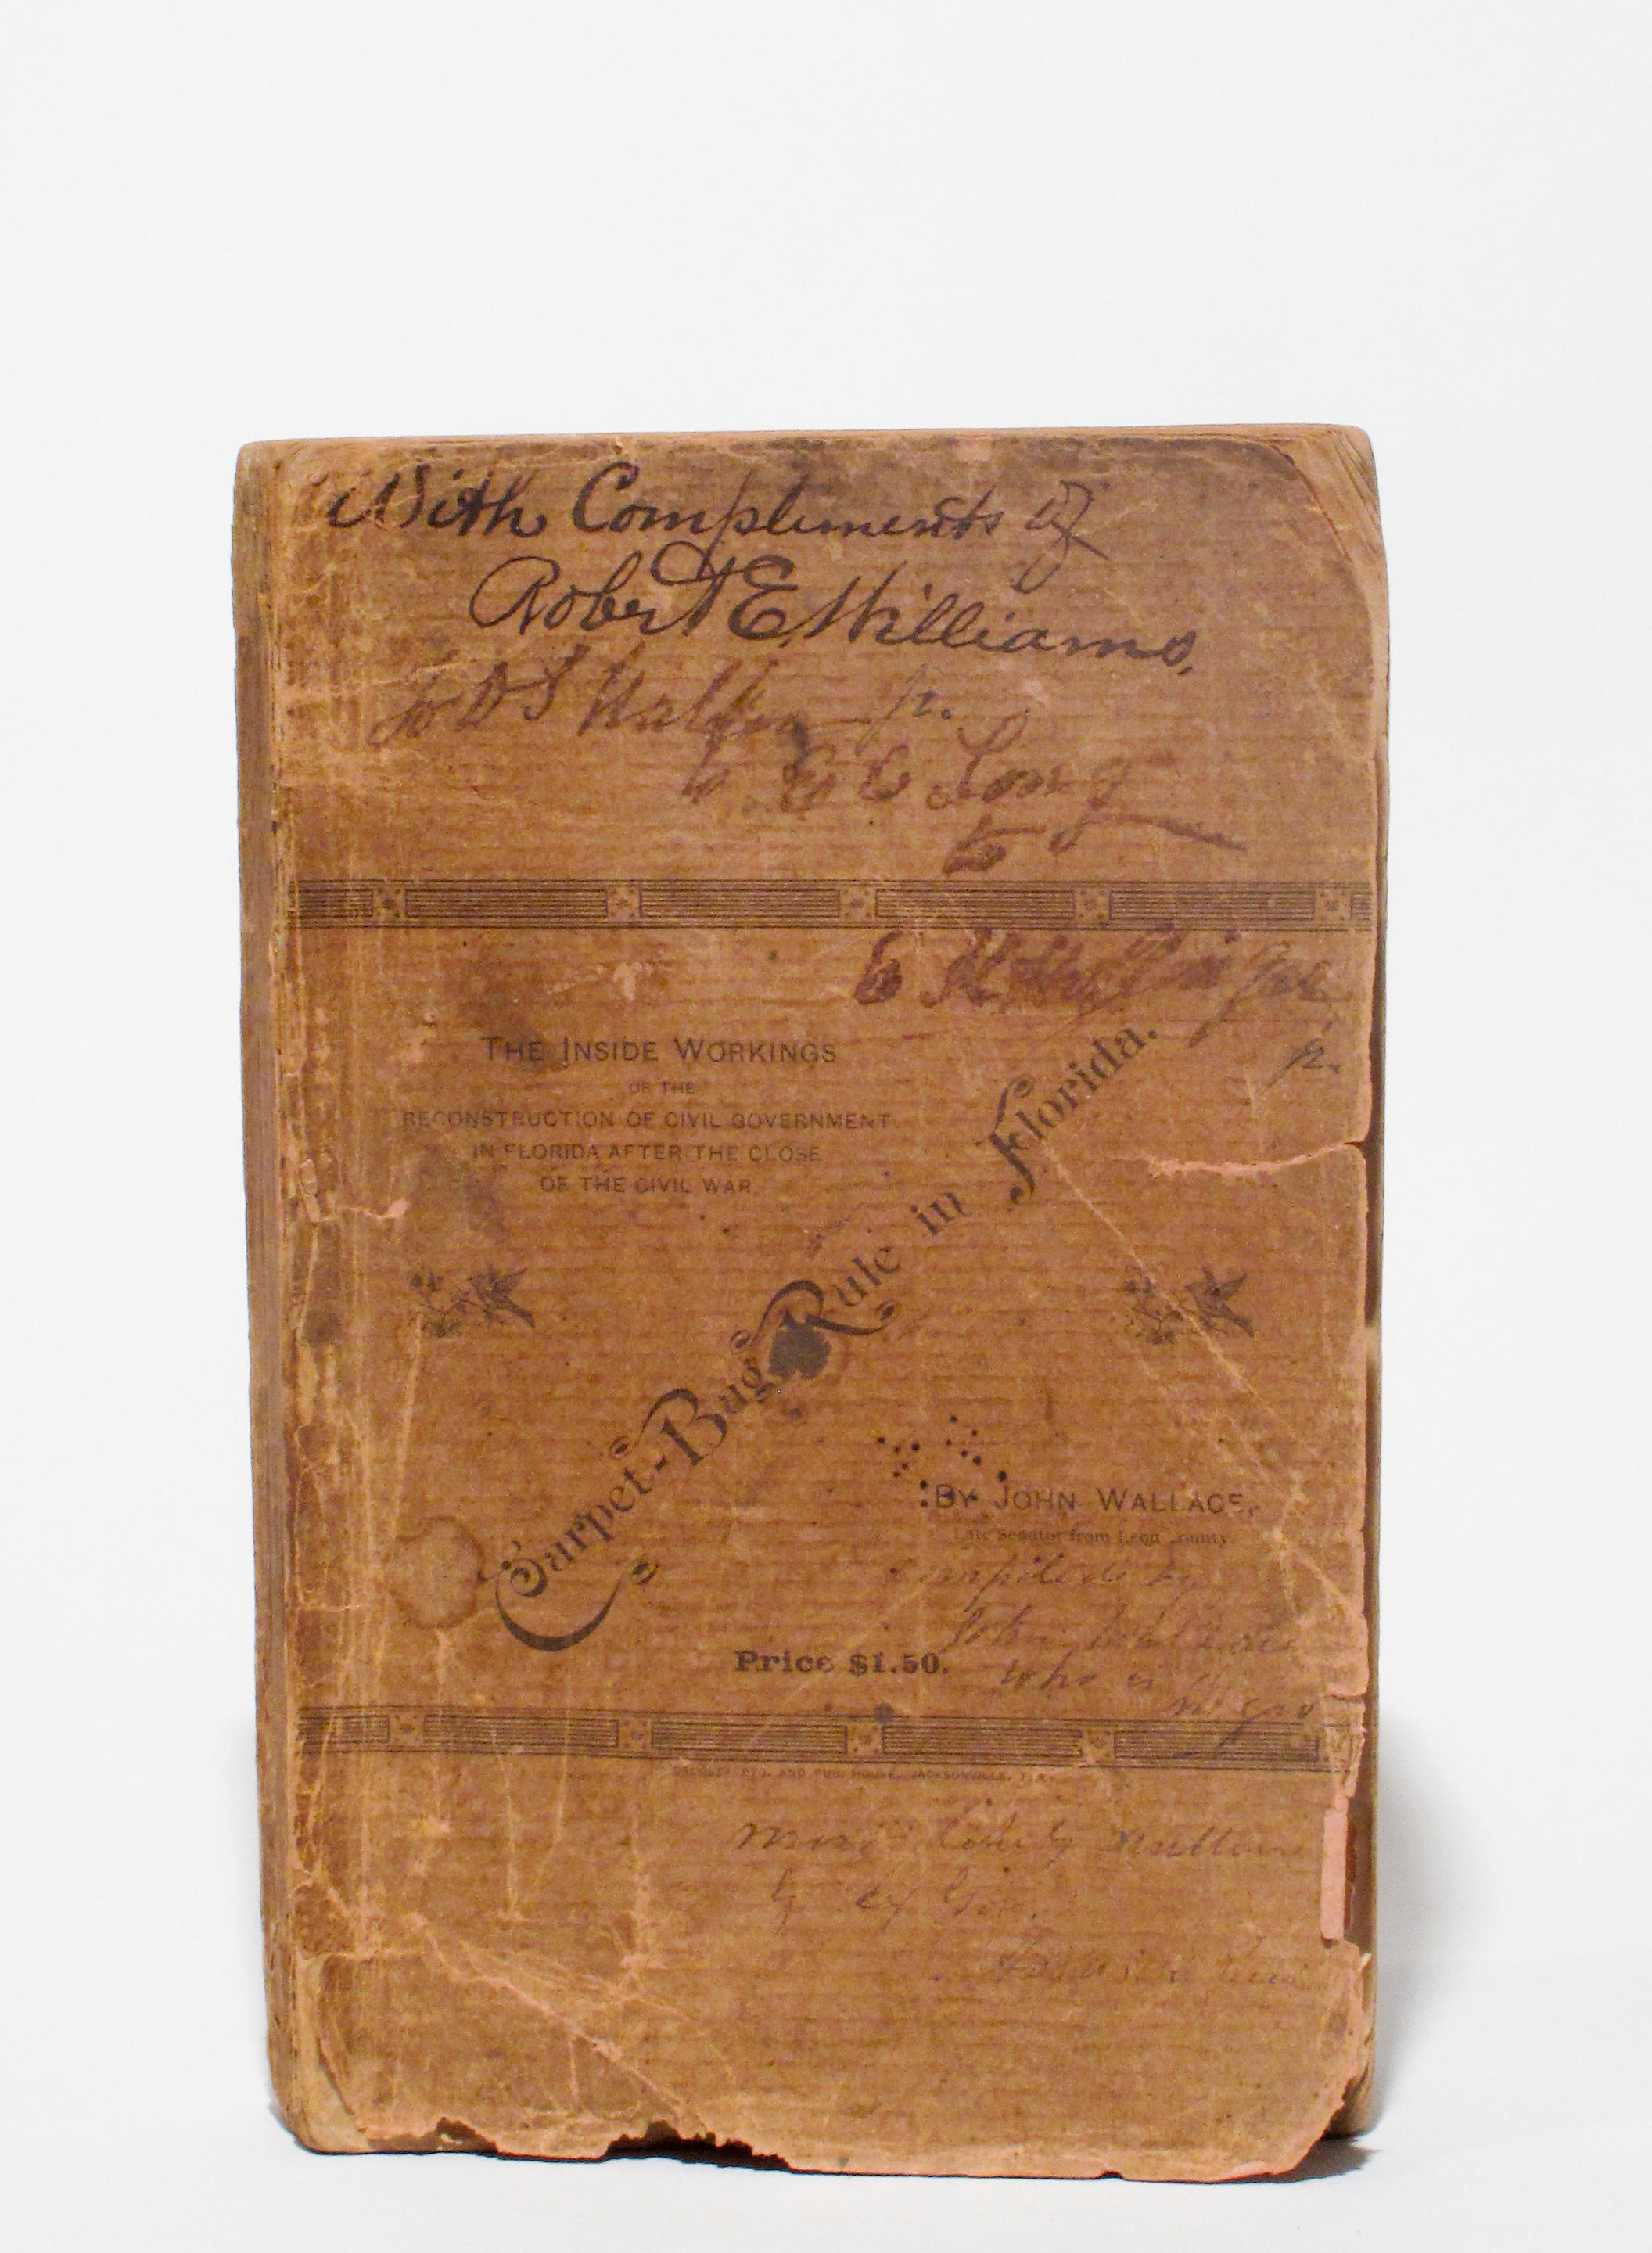 With Compliments of
Robert E Williams,
to D S Walker Jr.
to E C Long
to
to
Jr.
THE INSIDE WORKINGS
OF THE
RECONSTRUCTION OF CIVIL GOVERNMENT
IN FLORIDA AFTER THE CLOSE
OF THE CIVIL WAR.
Carpet-Bag Rule in Florida.
BY JOHN WALLACE,
Late Senator from Leon County.
Compiled by
John Wallace
who is
negro
Price $1.50.
DACOSTA PTG. AND PUB. HOUSE, JACKSONVILLE,
by Gov.